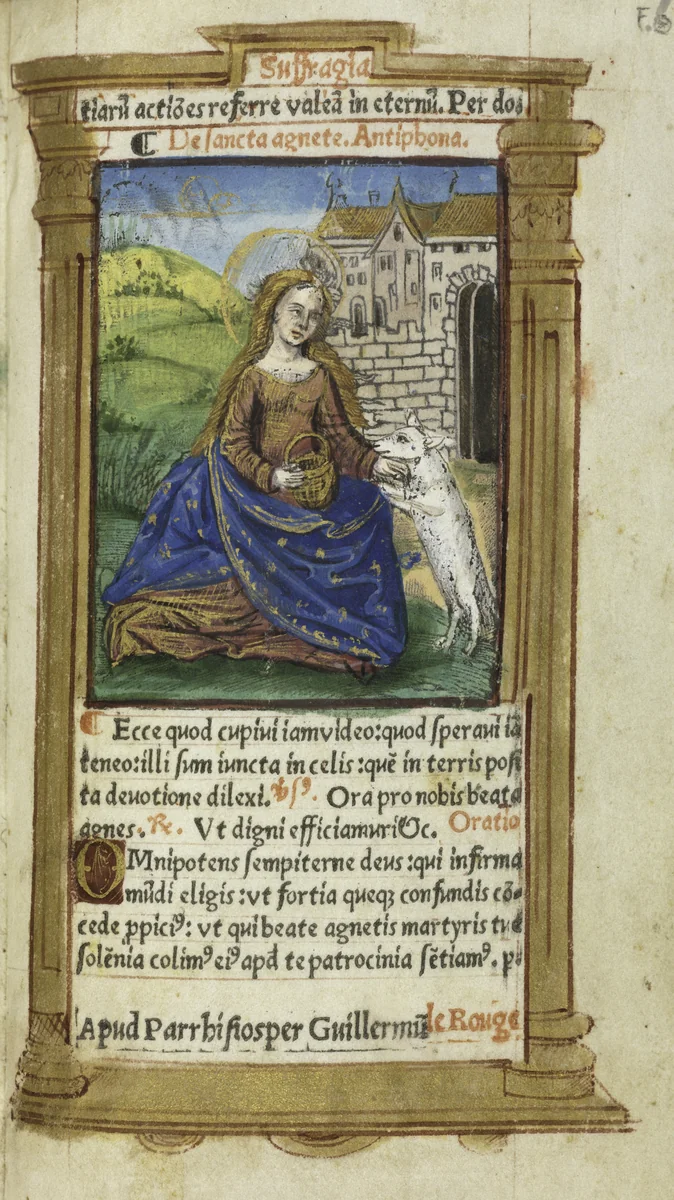 Suffragia
tiarũ actiões referre valeã in eternũ. Per do
¶ De sancta agnete. Antiphona.
¶ Ecce quod cupiui iam video: quod speraui iã
teneo: illi sum iuncta in celis: quẽ in terris posi
ta deuotione dilexi. Vs. Ora pro nobis beata
agnes. ℞. Vt digni efficiamuri &c. Oratio
OMnipotens sempiterne deus: qui infirma
mũdi eligis: vt fortia queqꝫ confundis cõ-
cede ꝓpiciꝰ: vt qui beate agnetis martyris tue
solẽnia colimꝰ eiꝰ apd te patrocinia sẽtiamꝰ. p
Apud Parrhisios per Guillermũ le Rouge